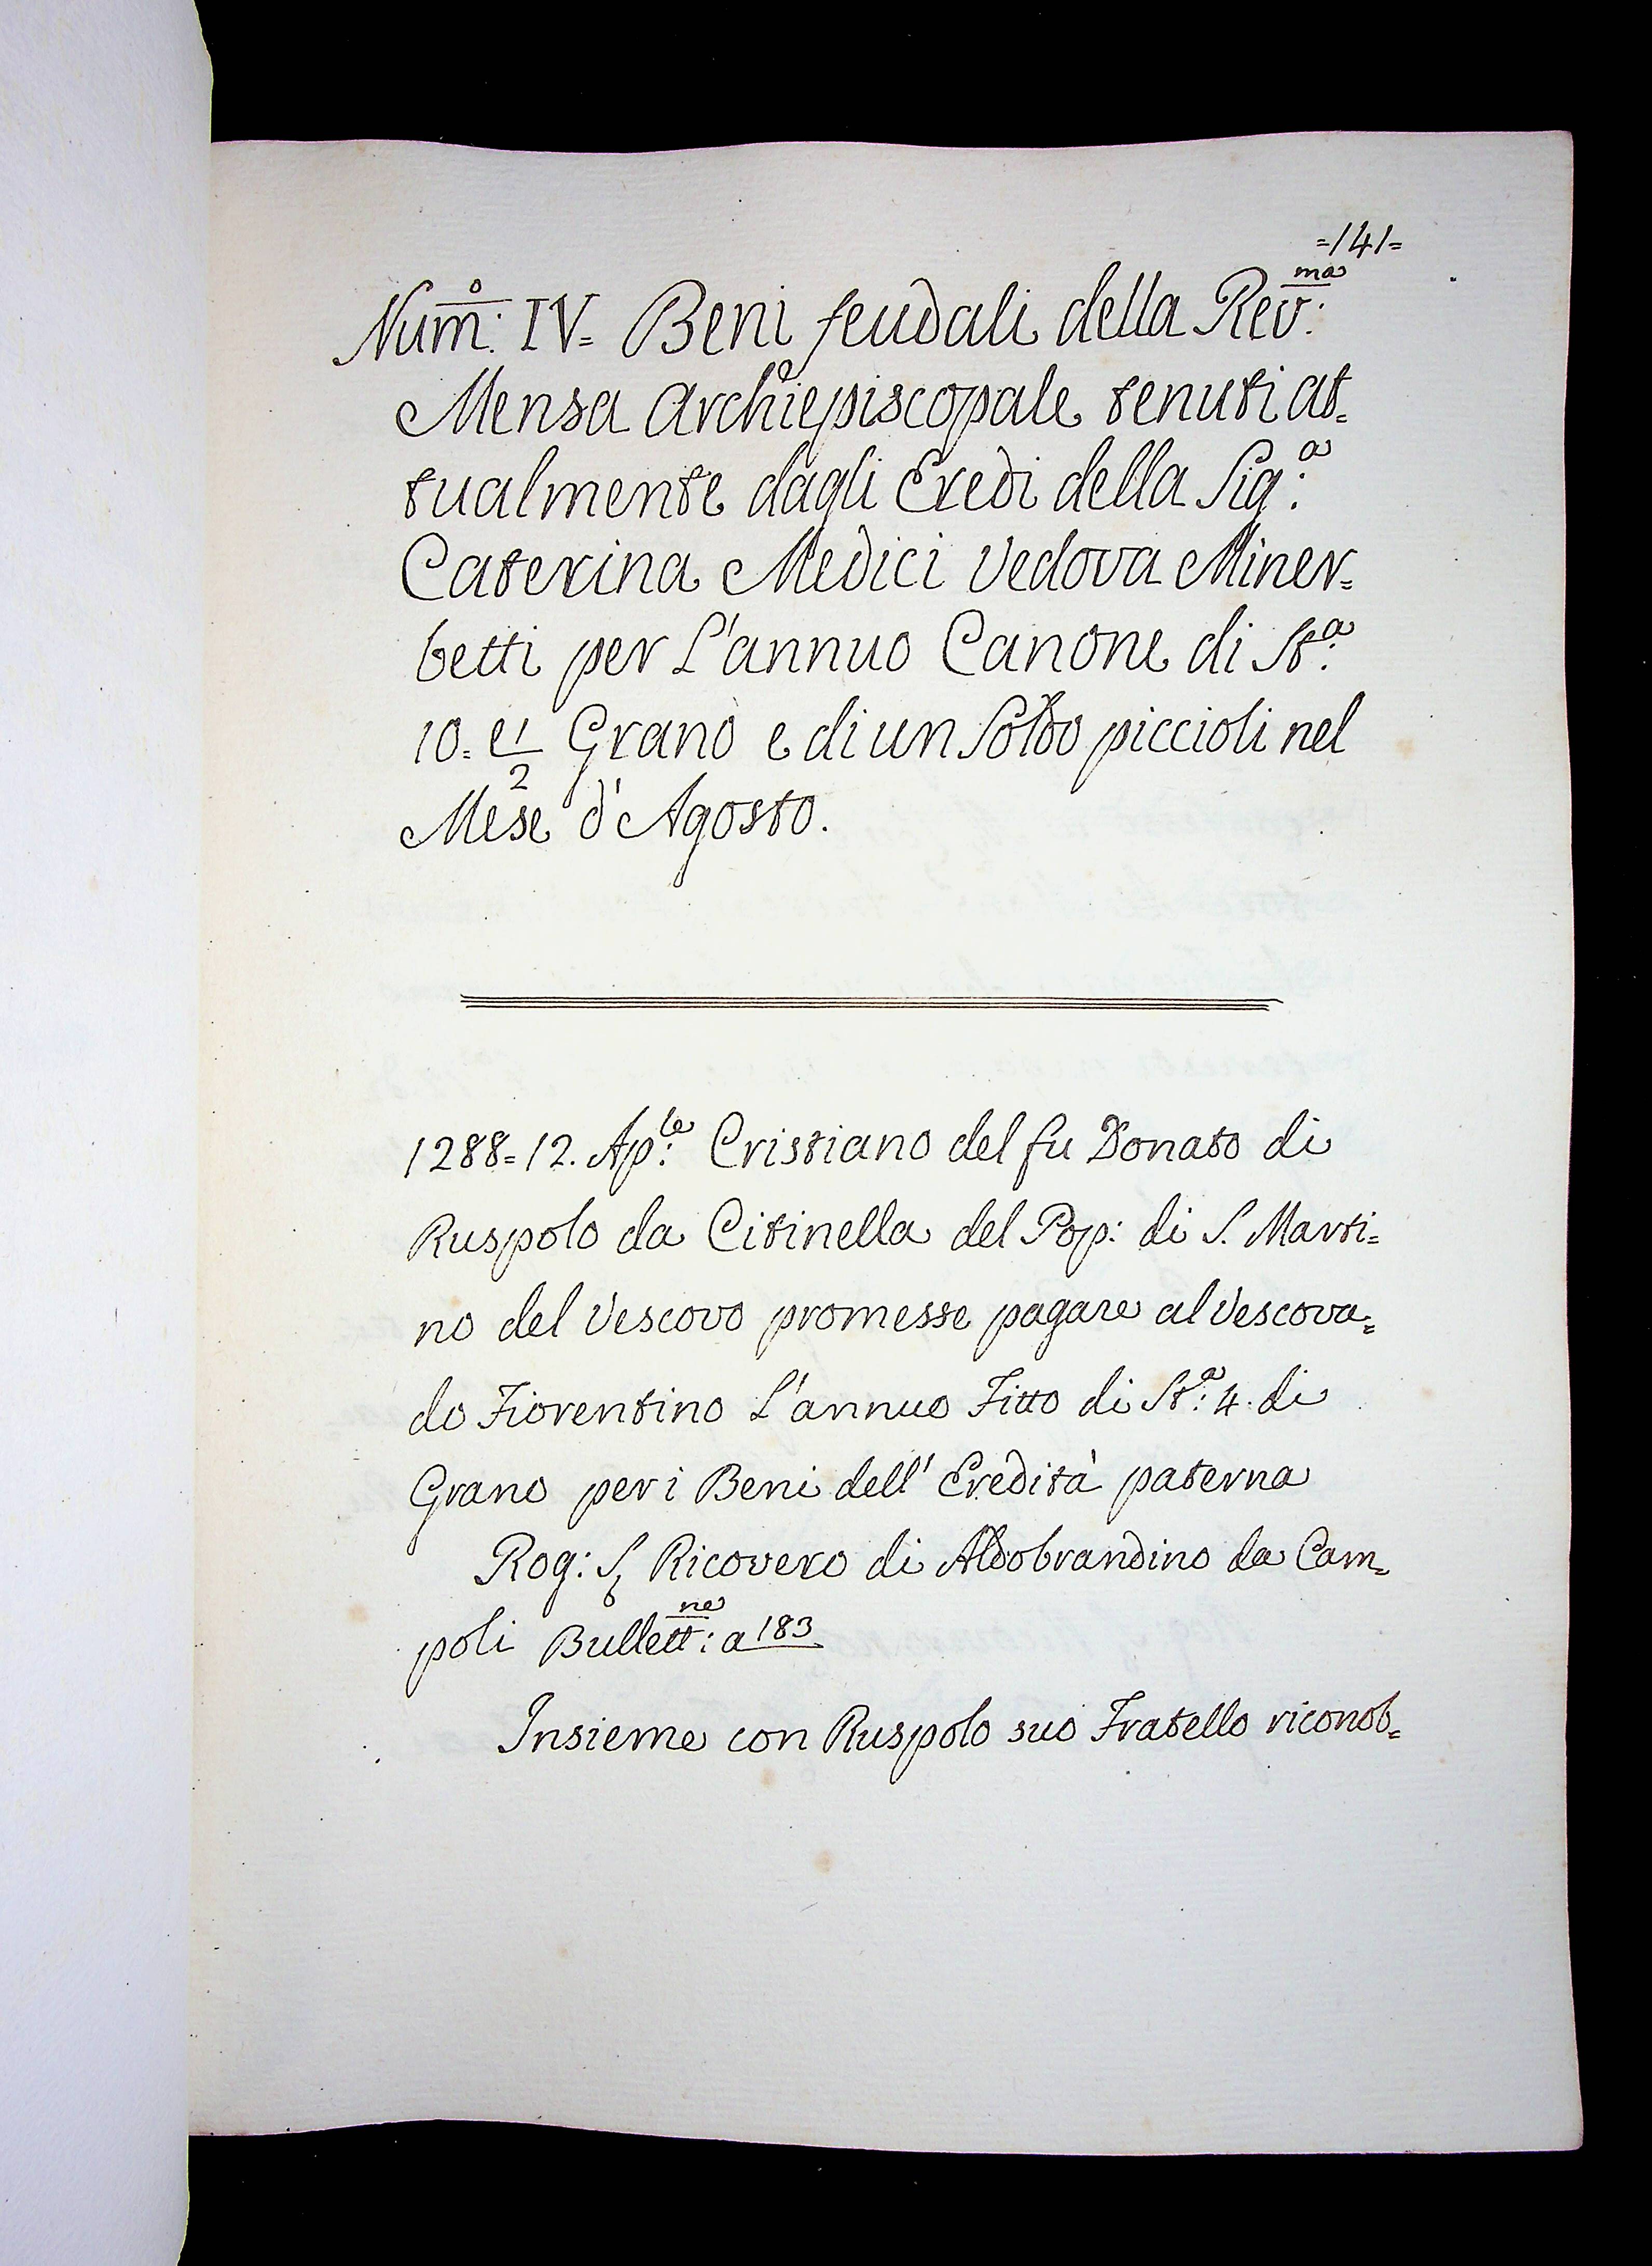 =141=
Num:º IV= Beni feudali della Rev:ma
Mensa Archiepiscopale tenuti at=
tualmente dagli Eredi della Sig:a
Caterina Medici Vedova Miner=
betti per L'annuo Canone di St:a
10= e 1/2 Grano e di un Soldo piccioli nel
Mese d'Agosto.
1288=12. Ap:le Cristiano del fu Donato di
Ruspolo da Citinella del Pop: di S. Marti=
no del Vescovo promesse pagare al Vescova=
do Fiorentino L'annuo Fitto di St:a 4. di
Grano per i Beni dell' Eredità paterna
Rog: S, Ricovero di Aldobrandino da Cam=
poli Bullett:ne a 183
Insieme con Ruspolo suo Fratello riconob=